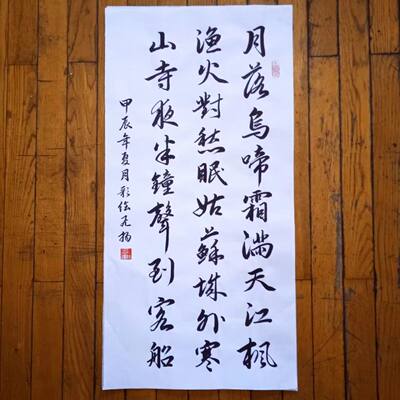 月落烏啼霜滿天江楓
渔火對愁眠姑蘇城外寒
山寺夜半鐘聲到客船
甲辰年夏月